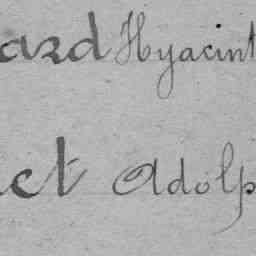 ard Hyacint
ct Adolp